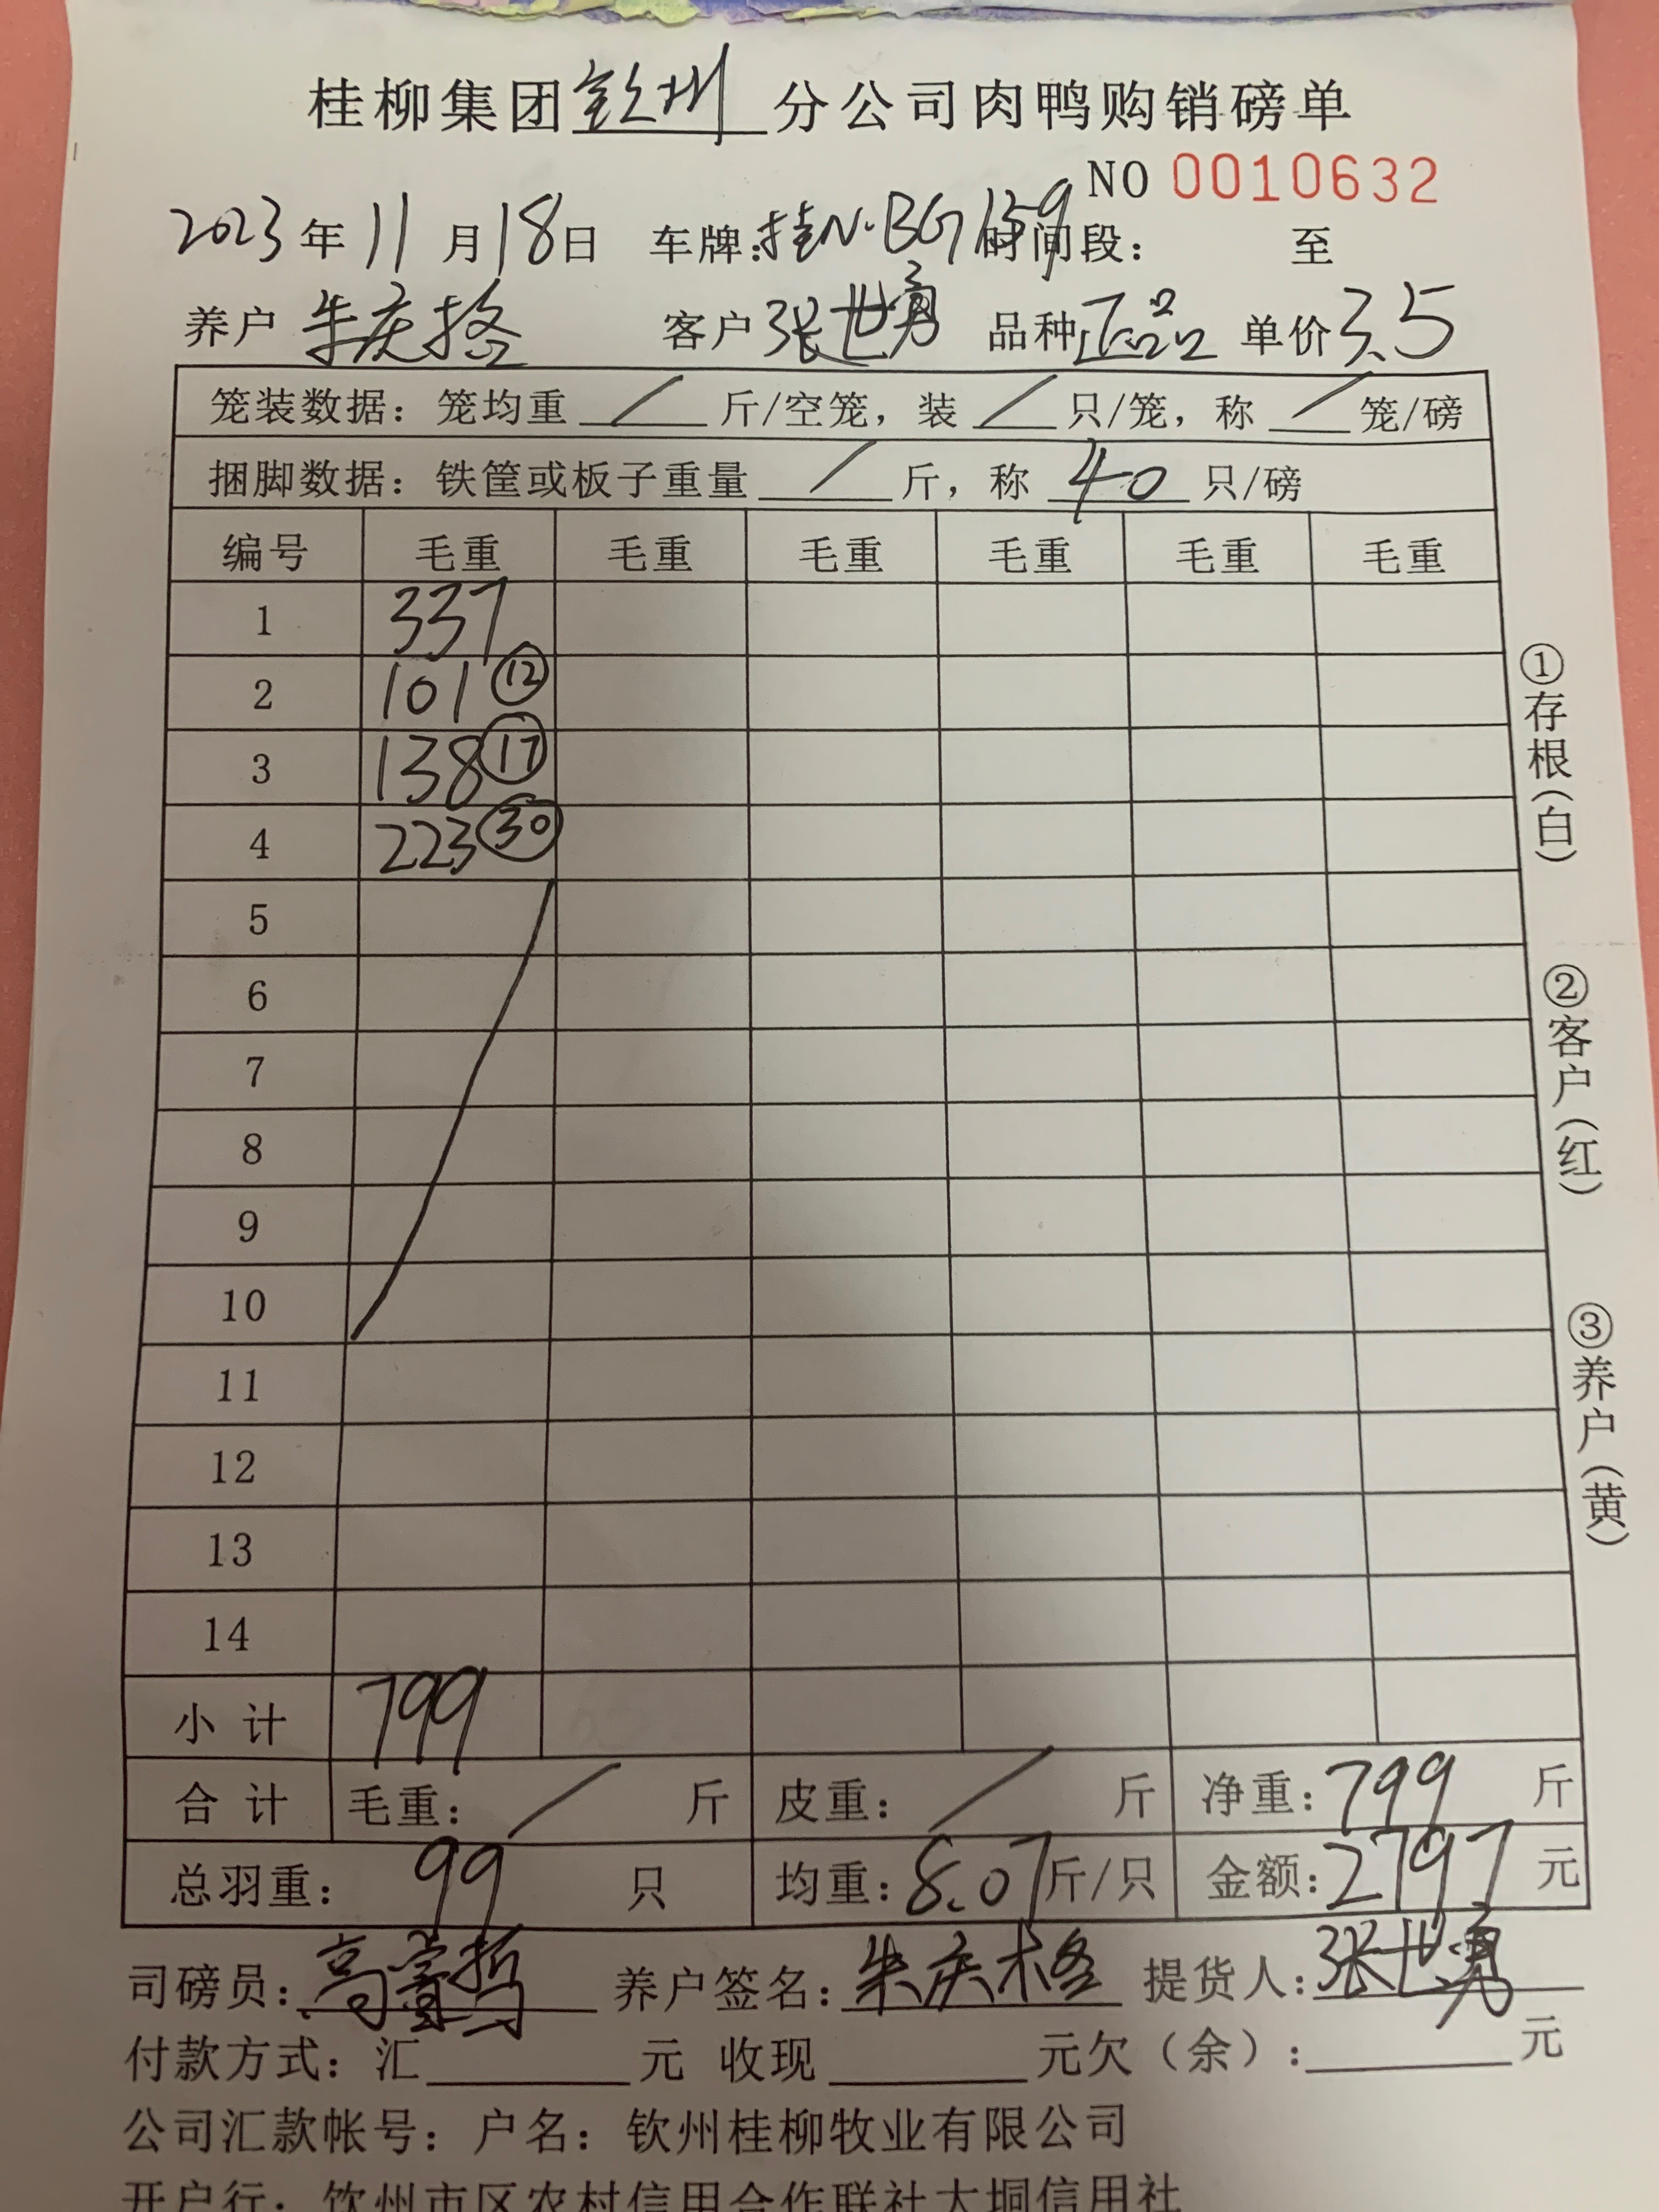 桂柳集团钦州分公司肉鸭购销磅单
NO 0010632
2023年11月18日 车牌:桂N·BG159 时间段: 至
养户 朱庆格 客户 张世勇 品种 正品 单价 3.5
笼装数据: 笼均重 / 斤/空笼, 装 / 只/笼, 称 / 笼/磅
捆脚数据: 铁筐或板子重量 / 斤, 称 40 只/磅
编号 毛重 毛重 毛重 毛重 毛重 毛重
1 337
2 101 ⑫
3 138 ⑰
4 223 ㉚
5
6
7
8
9
10
11
12
13
14
小计 799
合计 毛重: / 斤 皮重: / 斤 净重: 799 斤
总羽重: 99 只 均重: 8.07 斤/只 金额: 2797 元
司磅员: 高 养户签名: 朱庆格 提货人: 张世勇
付款方式: 汇 元 收现 元欠(余): 元
公司汇款帐号: 户名: 钦州桂柳牧业有限公司
开户行: 钦州市区农村信用合作联社大垌信用社
①存根(白)
②客户(红)
③养户(黄)